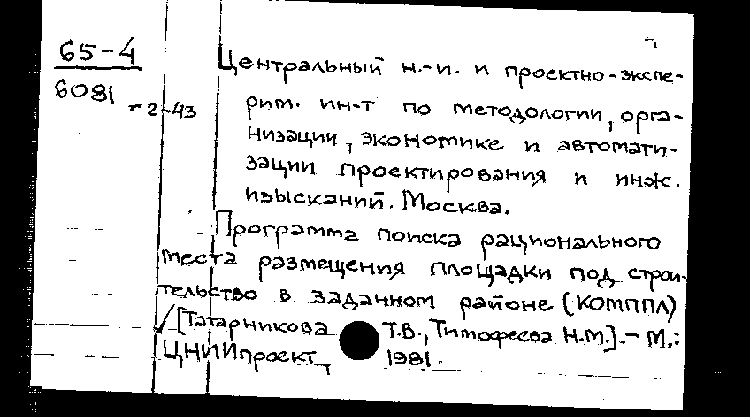 65-4
6081 -2-43
Центральный н.-и. и проектно-экспе-
рим. ин-т по методологии, орга-
низации, экономике и автомати-
зации проектирования и инж.
изысканий. Москва.
Программа поиска рационального
места размещения площадки под строи-
тельство в заданном районе (КОМППЛ)
/[Татарникова Т.В., Тимофеева Н.М.].- М.:
ЦНИИпроект, 1981.